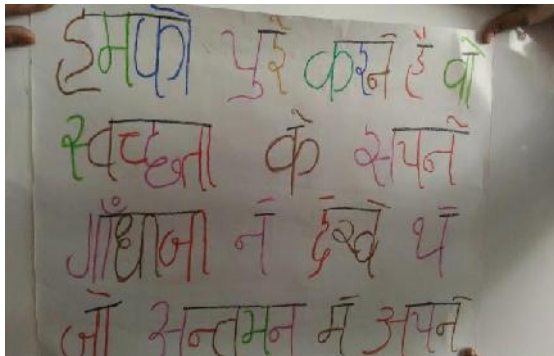 हमको पुरे करने है वो
स्वच्छता के सपने
गाँधीजी ने देखे थे
जो अन्तमन मे अपने